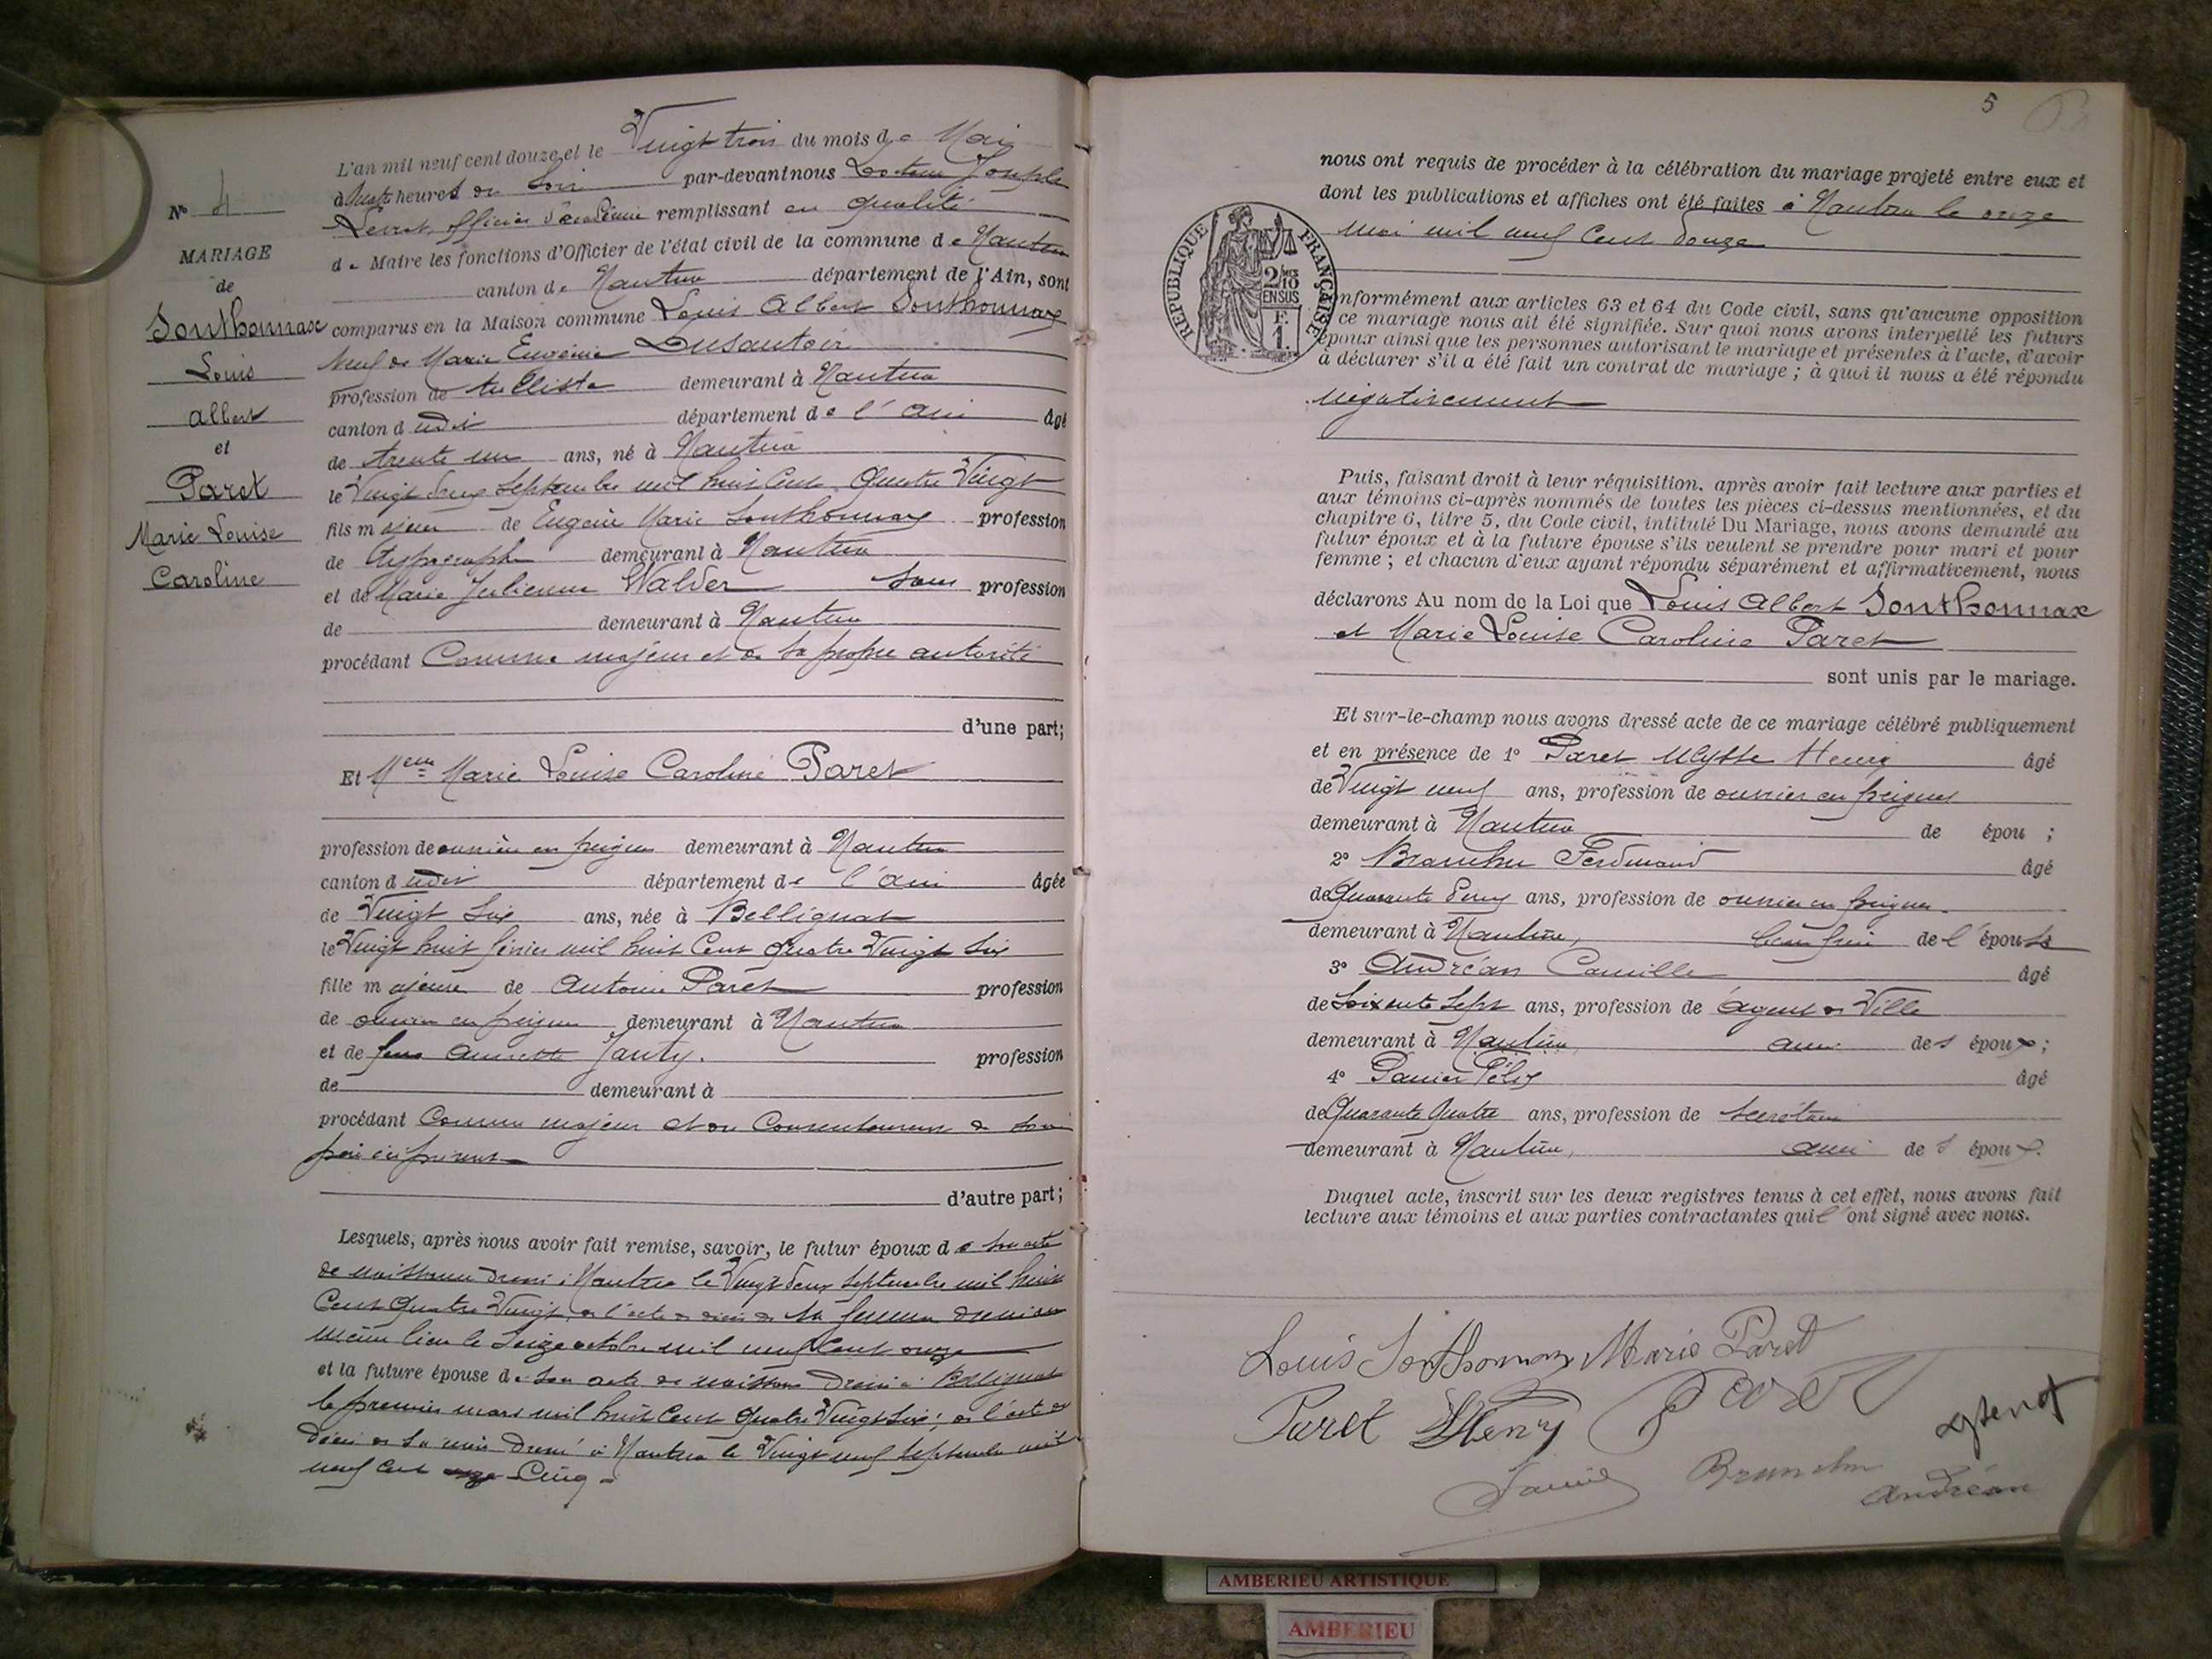 N° 4
MARIAGE
de
Sonthonnax
Louis
Albert
et
Paret
Marie Louise
Caroline
L'an mil neuf cent douze et le Vingt trois du mois de Mai
à quatre heures du Soir par-devant nous Docteur Joseph
officier d'académie remplissant en qualité
de Maire les fonctions d'Officier de l'état civil de la commune de Nantua
canton de Nantua département de l'Ain, sont
comparus en la Maison commune Louis Albert Sonthonnax
Veuf de Marie Eugénie Dusautoir
profession de tulliste demeurant à Nantua
canton dudit département de l'Ain âgé
de trente un ans, né à Nantua
le Vingt deux Septembre mil huit Cent Quatre Vingt
fils majeur de Eugène Marie Sonthonnax profession
de typographe demeurant à Nantua
et de Marie Julienne Walder Sans profession
de demeurant à Nantua
procédant Comme majeur et de sa propre autorité
d'une part;
Et Melle Marie Louise Caroline Paret
profession de ouvrière en peignes demeurant à Nantua
canton dudit département de l'Ain âgée
de Vingt Six ans, née à Bellignat
le Vingt huit février mil huit Cent Quatre Vingt Six
fille majeure de Antoine Paret profession
de ouvrier en peignes demeurant à Nantua
et de feue Janty. profession
de demeurant à
procédant Comme majeure et du Consentement de son
père ici présent
d'autre part;
Lesquels, après nous avoir fait remise, savoir, le futur époux de son acte
de naissance dressé à Nantua le Vingt deux Septembre mil huit
Cent Quatre Vingt, de l'acte de décès de sa femme dressé au
même lieu le Seize octobre mil neuf Cent onze
et la future épouse de son acte de naissance dressé à Bellignat
le premier mars mil huit Cent Quatre Vingt Six; de l'acte de
décès de sa mère dressé à Nantua le Vingt neuf Septembre mil
neuf Cent Cinq
5
nous ont requis de procéder à la célébration du mariage projeté entre eux et
dont les publications et affiches ont été faites à Nantua le onze
Mai mil neuf Cent douze
RÉPUBLIQUE FRANÇAISE
2/10
EN SUS
F.
1.
onformément aux articles 63 et 64 du Code civil, sans qu'aucune opposition
ce mariage nous ait été signifiée. Sur quoi nous avons interpellé les futurs
époux ainsi que les personnes autorisant le mariage et présentes à l'acte, d'avoir
à déclarer s'il a été fait un contrat de mariage; à quoi il nous a été répondu
négativement
Puis, faisant droit à leur réquisition, après avoir fait lecture aux parties et
aux témoins ci-après nommés de toutes les pièces ci-dessus mentionnées, et du
chapitre 6, titre 5, du Code civil, intitulé Du Mariage, nous avons demandé au
futur époux et à la future épouse s'ils veulent se prendre pour mari et pour
femme; et chacun d'eux ayant répondu séparément et affirmativement, nous
déclarons Au nom de la Loi que Louis Albert Sonthonnax
et Marie Louise Caroline Paret
sont unis par le mariage.
Et sur-le-champ nous avons dressé acte de ce mariage célébré publiquement
et en présence de 1° Paret Ulysse Henry âgé
de Vingt neuf ans, profession de ouvrier en peignes
demeurant à Nantua de épou ;
2° Branchu Ferdinand âgé
de Quarante Deux ans, profession de ouvrier en peignes.
demeurant à Nantua, beau frère de l'épouse
3° Andréan Camille âgé
de Soixante Sept ans, profession de agent de Ville
demeurant à Nantua, ami des époux;
4° Panier Félix âgé
de Quarante Quatre ans, profession de Secrétaire
demeurant à Nantua, ami des époux.
Duquel acte, inscrit sur les deux registres tenus à cet effet, nous avons fait
lecture aux témoins et aux parties contractantes qui l'ont signé avec nous.
Louis Sonthonnax Marie Paret
Paret Henry Paret
Branchu
Andréan
AMBERIEU ARTISTIQUE
AMBERIEU